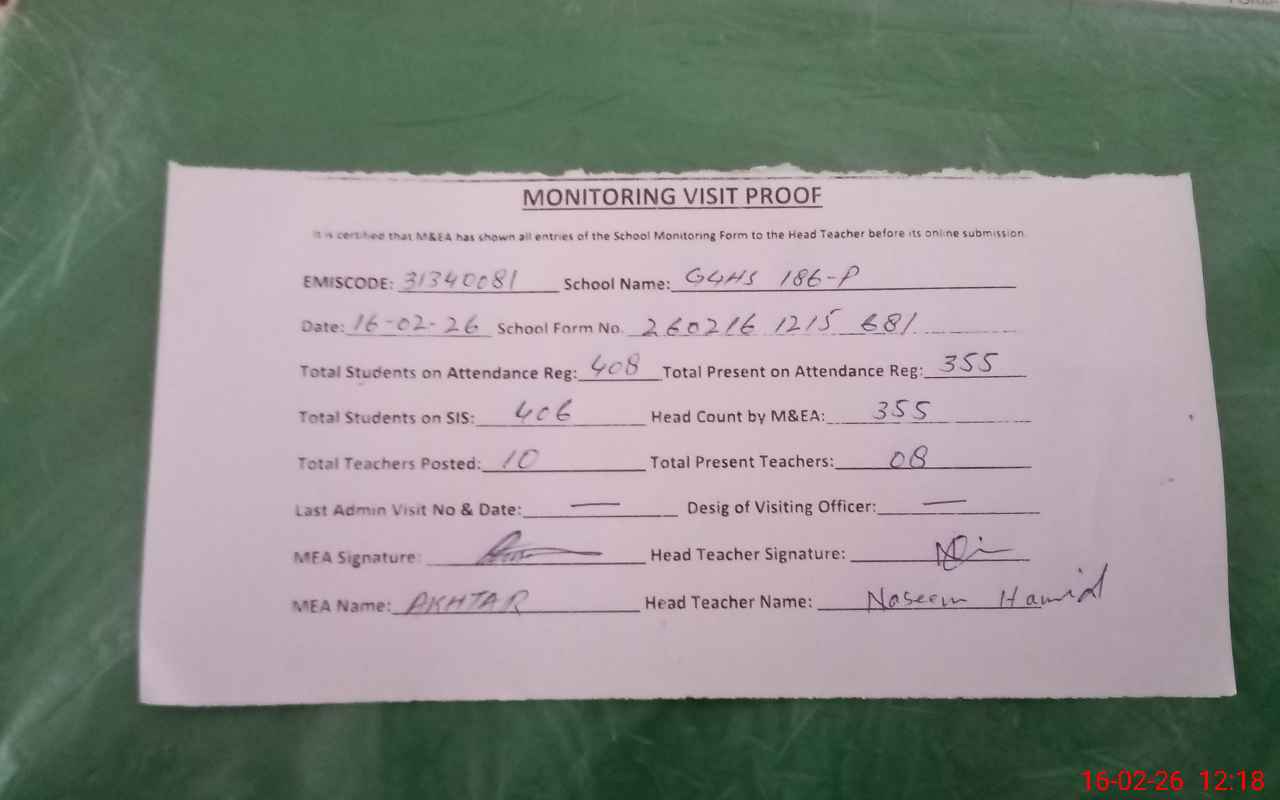 MONITORING VISIT PROOF
It is certified that M&EA has shown all entries of the School Monitoring Form to the Head Teacher before its online submission.
EMISCODE: 31340081 School Name: GGHS 186-P
Date: 16-02-26 School Form No. 260216 1215 681
Total Students on Attendance Reg: 408 Total Present on Attendance Reg: 355
Total Students on SIS: 406 Head Count by M&EA: 355
Total Teachers Posted: 10 Total Present Teachers: 08
Last Admin Visit No & Date: — Desig of Visiting Officer: —
MEA Signature: Head Teacher Signature:
MEA Name: AKHTAR Head Teacher Name: Naseem Hamid
16-02-26 12:18